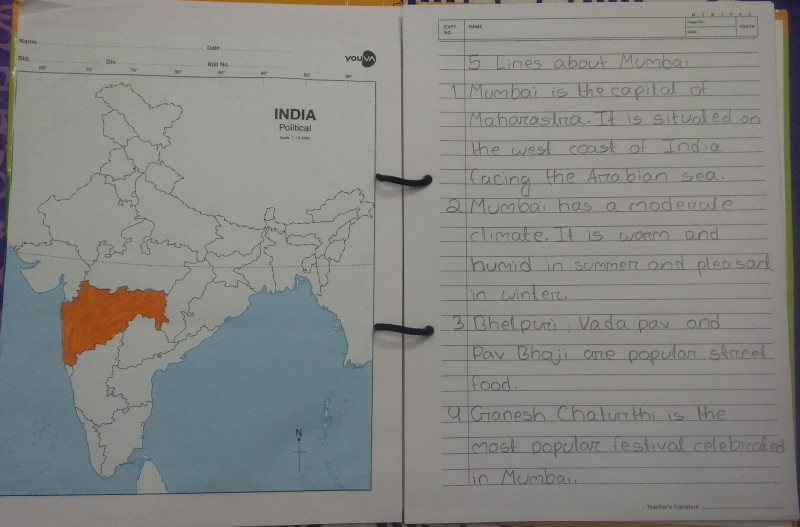 Name
Date
Std.
Div.
Roll No.
YOUVA
INDIA
Political
N
EXPT. NO.
NAME
M T W T F S S
Page No.:
Date:
YOUVA
5 Lines about Mumbai
1 Mumbai is the capital of
Maharastra. It is situated on
the west coast of India
facing the Arabian sea.
2 Mumbai has a moderate
climate. It is warm and
humid in summer and pleasant
in winter.
3 Bhelpuri, Vada pav and
Pav Bhaji are popular street
food.
4 Ganesh Chaturthi is the
most popular festival celebrated
in Mumbai.
Teacher's Signature